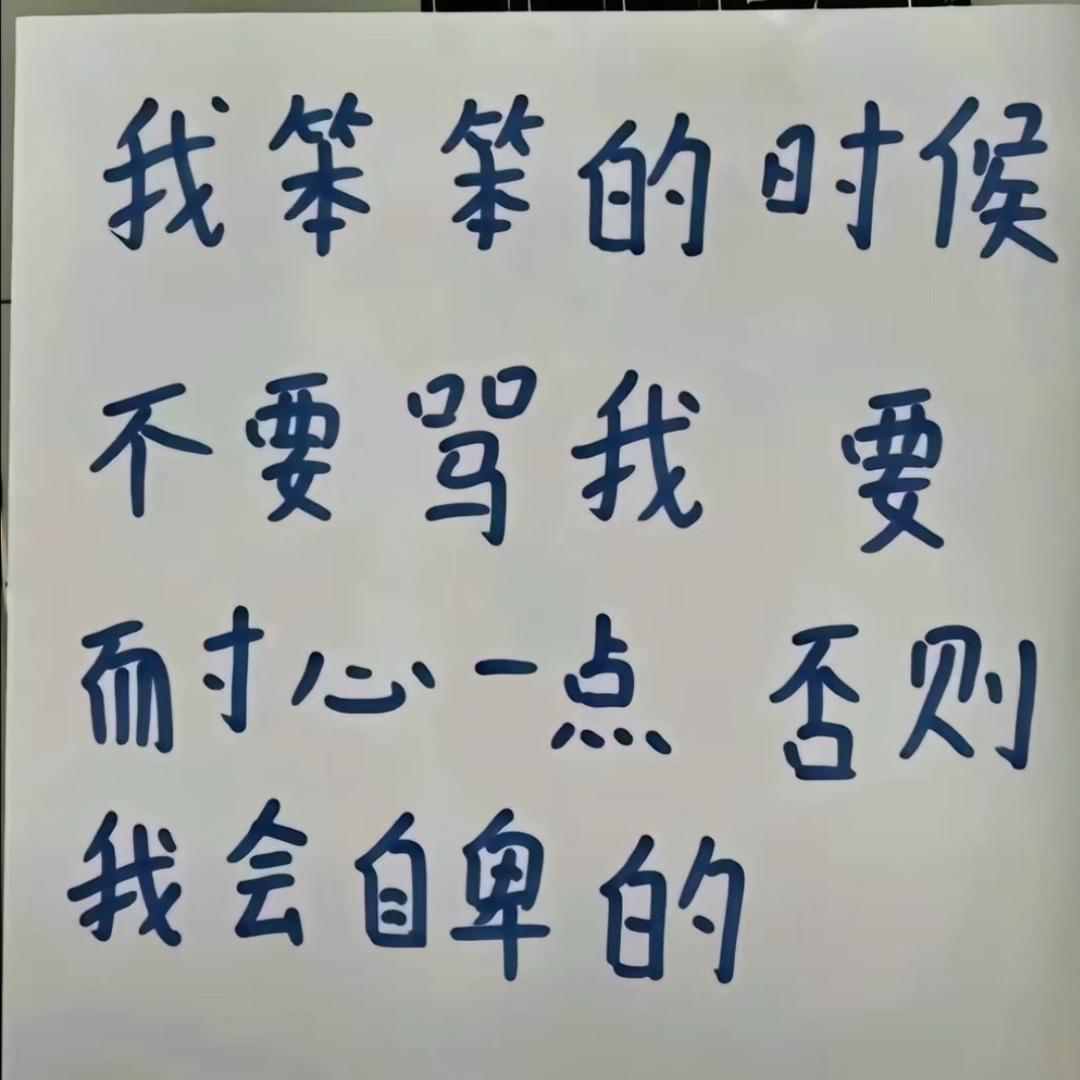 我笨笨的时候
不要骂我 要
耐心一点 否则
我会自卑的